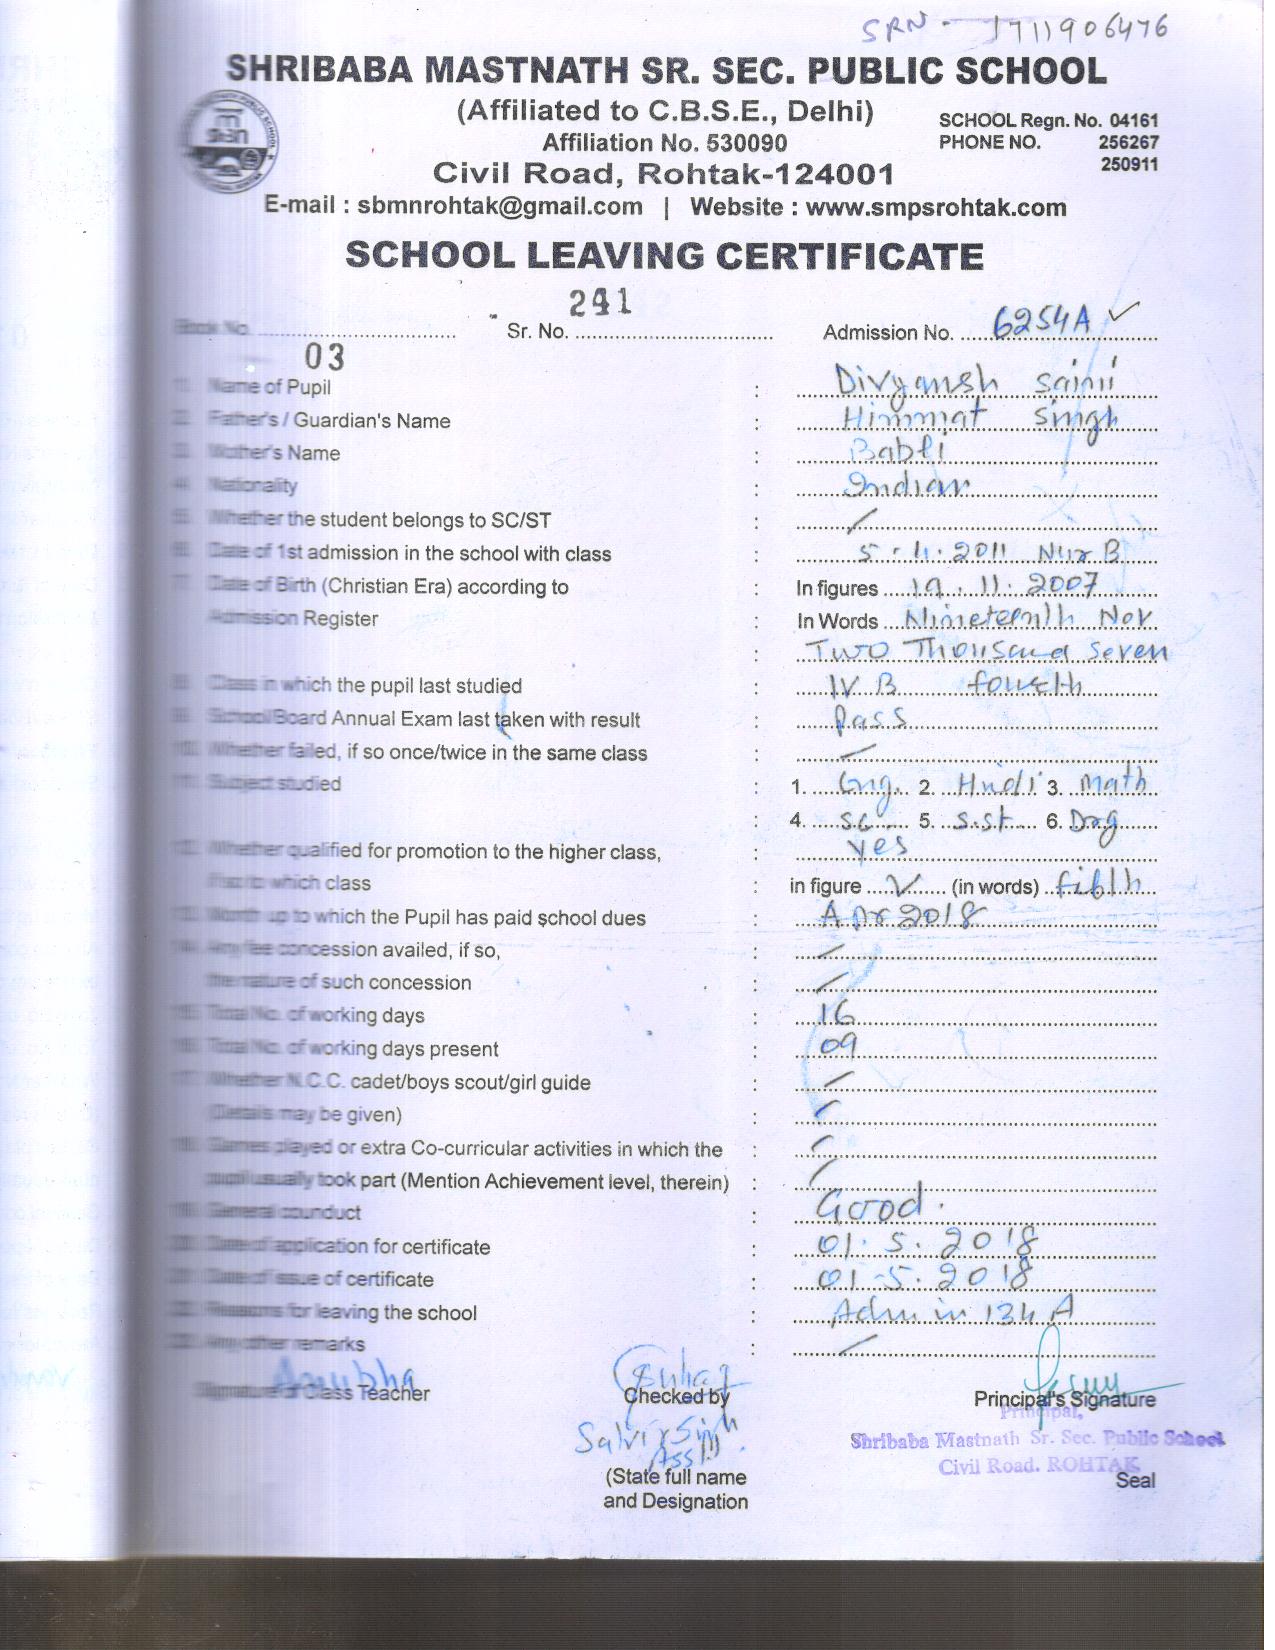 SRN - 1711906476
SHRIBABA MASTNATH SR. SEC. PUBLIC SCHOOL
(Affiliated to C.B.S.E., Delhi)
SCHOOL Regn. No. 04161
Affiliation No. 530090
PHONE NO. 256267
250911
Civil Road, Rohtak-124001
E-mail : sbmnrohtak@gmail.com | Website : www.smpsrohtak.com
SCHOOL LEAVING CERTIFICATE
Book No. 03 Sr. No. 241 Admission No. 6254A
1. Name of Pupil : Divyansh Saini
2. Father's / Guardian's Name : Himmat Singh
3. Mother's Name : Babli
4. Nationality : Indian
5. Whether the student belongs to SC/ST : /
6. Date of 1st admission in the school with class : 5.4.2011 Nur B
7. Date of Birth (Christian Era) according to : In figures 19.11.2007
Admission Register : In Words Nineternth Nov.
: Two Thousand Seven
8. Class in which the pupil last studied : IV B fourth
9. School/Board Annual Exam last taken with result : Pass
10. Whether failed, if so once/twice in the same class : /
11. Subject studied : 1. Eng. 2. Hindi 3. Math
: 4. SC 5. S.St 6. Drg
12. Whether qualified for promotion to the higher class, : Yes
if so to which class : in figure V (in words) fifth
13. Month up to which the Pupil has paid school dues : Apr 2018
14. Any fee concession availed, if so, : /
the nature of such concession : /
15. Total No. of working days : 16
16. Total No. of working days present : 09
17. Whether N.C.C. cadet/boys scout/girl guide : /
(Details may be given) : /
18. Games played or extra Co-curricular activities in which the : /
pupil usually took part (Mention Achievement level, therein) : /
19. General counduct : Good.
20. Date of application for certificate : 01.5.2018
21. Date of issue of certificate : 01-5.2018
22. Reasons for leaving the school : Adm in 134 A
23. Any other remarks : /
Anubha
Signature of Class Teacher Checked by Principal's Signature
Principal,
Singh Shribaba Mastnath Sr. Sec. Public School
Civil Road. ROHTAK
(State full name Seal
and Designation